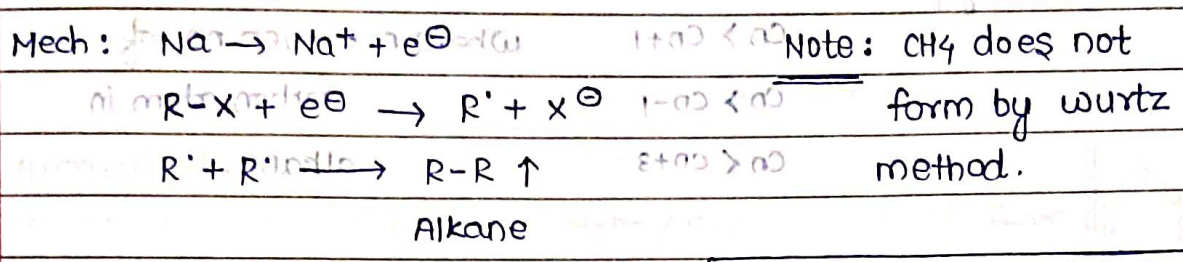 Mech : Na → Na⁺ + e⊖
R-X + e⊖ → R• + X⊖
R• + R• → R-R ↑
Alkane
Note : CH4 does not
form by wurtz
method.